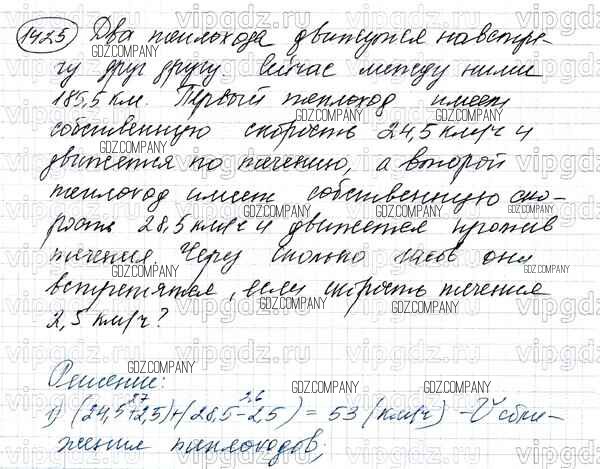 1425 Два теплохода движутся навстре-
чу друг другу. Сейчас между ними
185,5 км. Первый теплоход имеет
собственную скорость 24,5 км/ч и
движется по течению, а второй
теплоход имеет собственную ско-
рость 28,5 км/ч и движется против
течения. Через сколько часов они
встретятся, если скорость течения
2,5 км/ч?
Решение:
27 26
1) (24,5+2,5)+(28,5-2,5) = 53 (км/ч) - V сбли-
жения теплоходов;